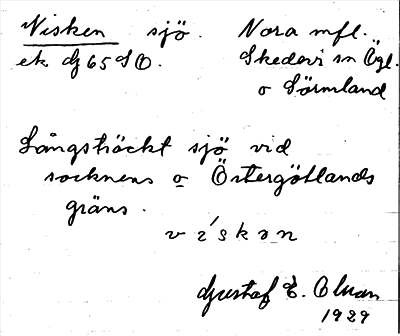 Nisken sjö. Nora mfl.
ek dj 65 SO. Skedevi sn Ögl.
o Sörmland
Långsträckt sjö vid
socknens o Östergötlands
gräns.
Gustaf E.
1929